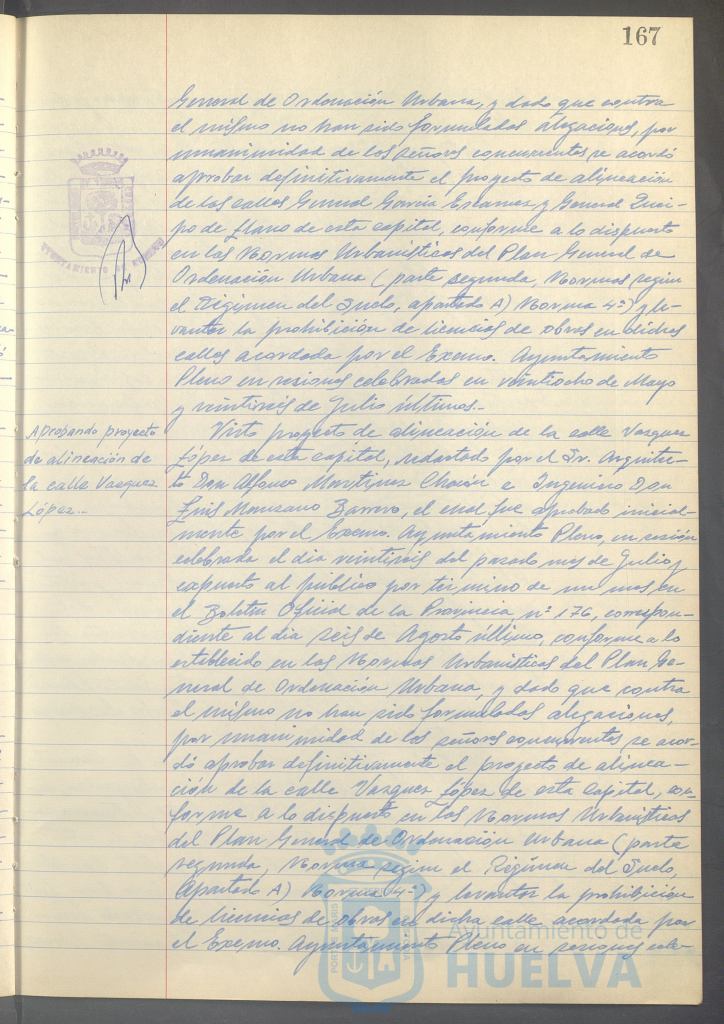 167
General de Ordenación Urbana, y dado que contra
el mismo no han sido formuladas alegaciones, por
unanimidad de los señores concurrentes se acordó
aprobar definitivamente el proyecto de alineación
de las calles General García Escamez y General Quei-
po de Llano de esta capital, conforme a lo dispuesto
en las Normas Urbanísticas del Plan General de
Ordenación Urbana (parte segunda, Normas según
el Régimen del Suelo, apartado A) Norma 4ª) y le-
vantar la prohibición de licencias de obras en dichas
calles acordada por el Excmo. Ayuntamiento
Pleno en sesiones celebradas en veintiocho de Mayo
y veintiseis de Julio últimos.-
Aprobando proyecto
de alineación de
la calle Vazquez
López.-
Visto proyecto de alineación de la calle Vazquez
López de esta capital, redactado por el Sr. Arquitec-
to Don Alfonso Martínez Chacón e Ingeniero Don
Luis Manzano Barrero, el cual fue aprobado inicial-
mente por el Excmo. Ayuntamiento Pleno, en sesión
celebrada el día veintiseis del pasado mes de Julio, y
expuesto al público por término de un mes en
el Boletín Oficial de la Provincia nº 176, correspon-
diente al día seis de Agosto último, conforme a lo
establecido en las Normas Urbanísticas del Plan Ge-
neral de Ordenación Urbana, y dado que contra
el mismo no han sido formuladas alegaciones,
por unanimidad de los señores concurrentes se acor-
dó aprobar definitivamente el proyecto de alinea-
ción de la calle Vazquez López de esta Capital, con-
forme a lo dispuesto en las Normas Urbanísticas
del Plan General de Ordenación Urbana (parte
segunda, Norma según el Régimen del Suelo,
Apartado A) Norma 4ª) y levantar la prohibición
de licencias de obras en dicha calle acordada por
el Excmo. Ayuntamiento Pleno en sesiones cele-
Ayuntamiento de
HUELVA